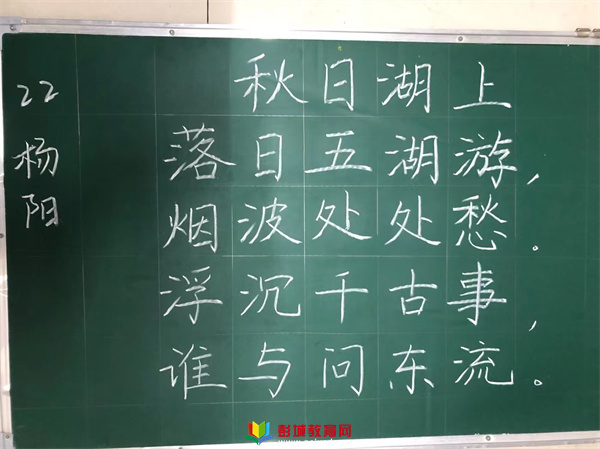 秋日湖上
落日五湖游,
烟波处处愁.
浮沉千古事,
谁与问东流。
22
杨阳
彭城教育网